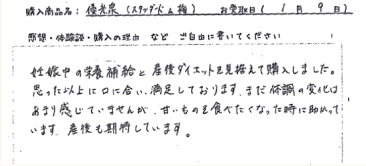 購入商品名：優光泉（スタンダード&梅） お受取日（1月9日）
感想・体験談・購入の理由 など ご自由に書いてください
妊娠中の栄養補給と産後ダイエットを見据えて購入しました。
思った以上に口に合い、満足しております。まだ体調の変化は
あまり感じていませんが、甘いものを食べたくなった時に助かって
います。産後も期待しています。